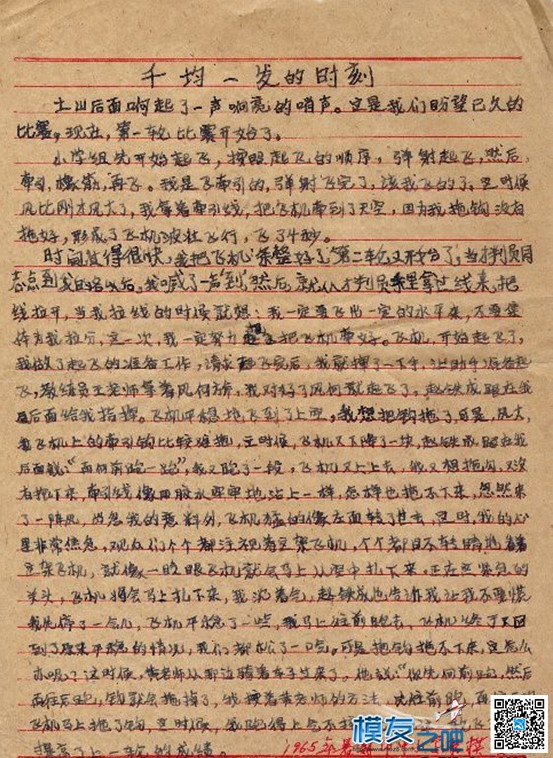 千均一发的时刻
土山后面响起了一声响亮的哨声。这是我们盼望已久的
比赛。现在,第一轮比赛开始了。
小学组先开始起飞,按照起飞的顺序,弹射起飞,然后,
牵引,橡筋,再飞。我是飞牵引的,弹射飞完了,该我飞的了,这时候
风比刚才风大了,我拿着牵引线,把飞机牵到了天空,因为我拖钩没有
拖好,形成了飞机波状飞行,飞了4秒。
时间过得很快,我把飞机调整好了,第二轮又开始了,当裁判员同
志点到我的名以后,我喊了一声到,然后,就从裁判员手里拿过线来,把
线拉开,当我拉线的时候就想:我一定要飞出一定的水平来,不要使
这一次,我一定努力把飞机牵好。飞机,开始起飞了,
我做了起飞的准备工作,请求起飞完后,我就挥了一下手,让助手准备起
飞,教练员王老师拿着风向旗,我对好了风向就起飞了。赵铁成跟在我
后面给我指挥。飞机平稳地飞到了上空,我想把钩拖了,可是,风大,
我飞机上的牵引钩比较难拖,这时候,飞机又下降了一块,赵铁成跟在我
后面说:“再向前跑一跑”,我又跑了一段,飞机又上上去,我又想拖钩,又没
有拖下来,牵引线像用胶水牢牢地沾上一样,怎样也拖不下来,忽然来
了一阵风,出忽我的意料外,飞机猛的像左面转了过去,这时,我的心
里非常焦急,观众们个个都注视着这架飞机,个个都目不转睛地看着
这架飞机,就像一眨眼飞机就会马上从空中扎下来,正在这紧急的
关头,飞机将会马上扎下来,我沉着气,赵铁成也告诉我让我不要慌
我先停了一会儿,飞机平稳了一些,我马上往前跑去,飞机终于又回
到了原来平稳的情况,我们都松了一口气。可是拖钩拖不下来,这怎么
办呢?这时候,黄老师从那边骑着车子过来了。他说:“你先向前跑,然后
再往后跑,钩就会拖掉了,我按着黄老师的方法,先往前跑,再往后
飞机马上拖了钩,这时候,我跑得上气不接
提高了上一轮的成绩。
1965年
模友之吧